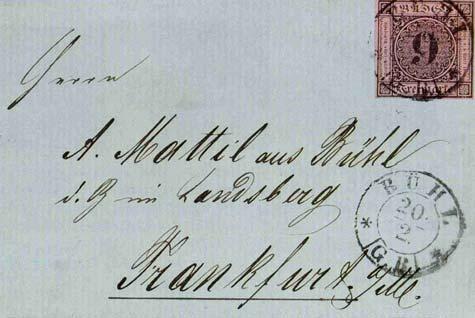 BADEN
9
Kreuzer
Herrn
A. Mattil aus Bühl
d. Z im Landsberg
Frankfurt a/M.
BÜHL
20.
2.
G.R.